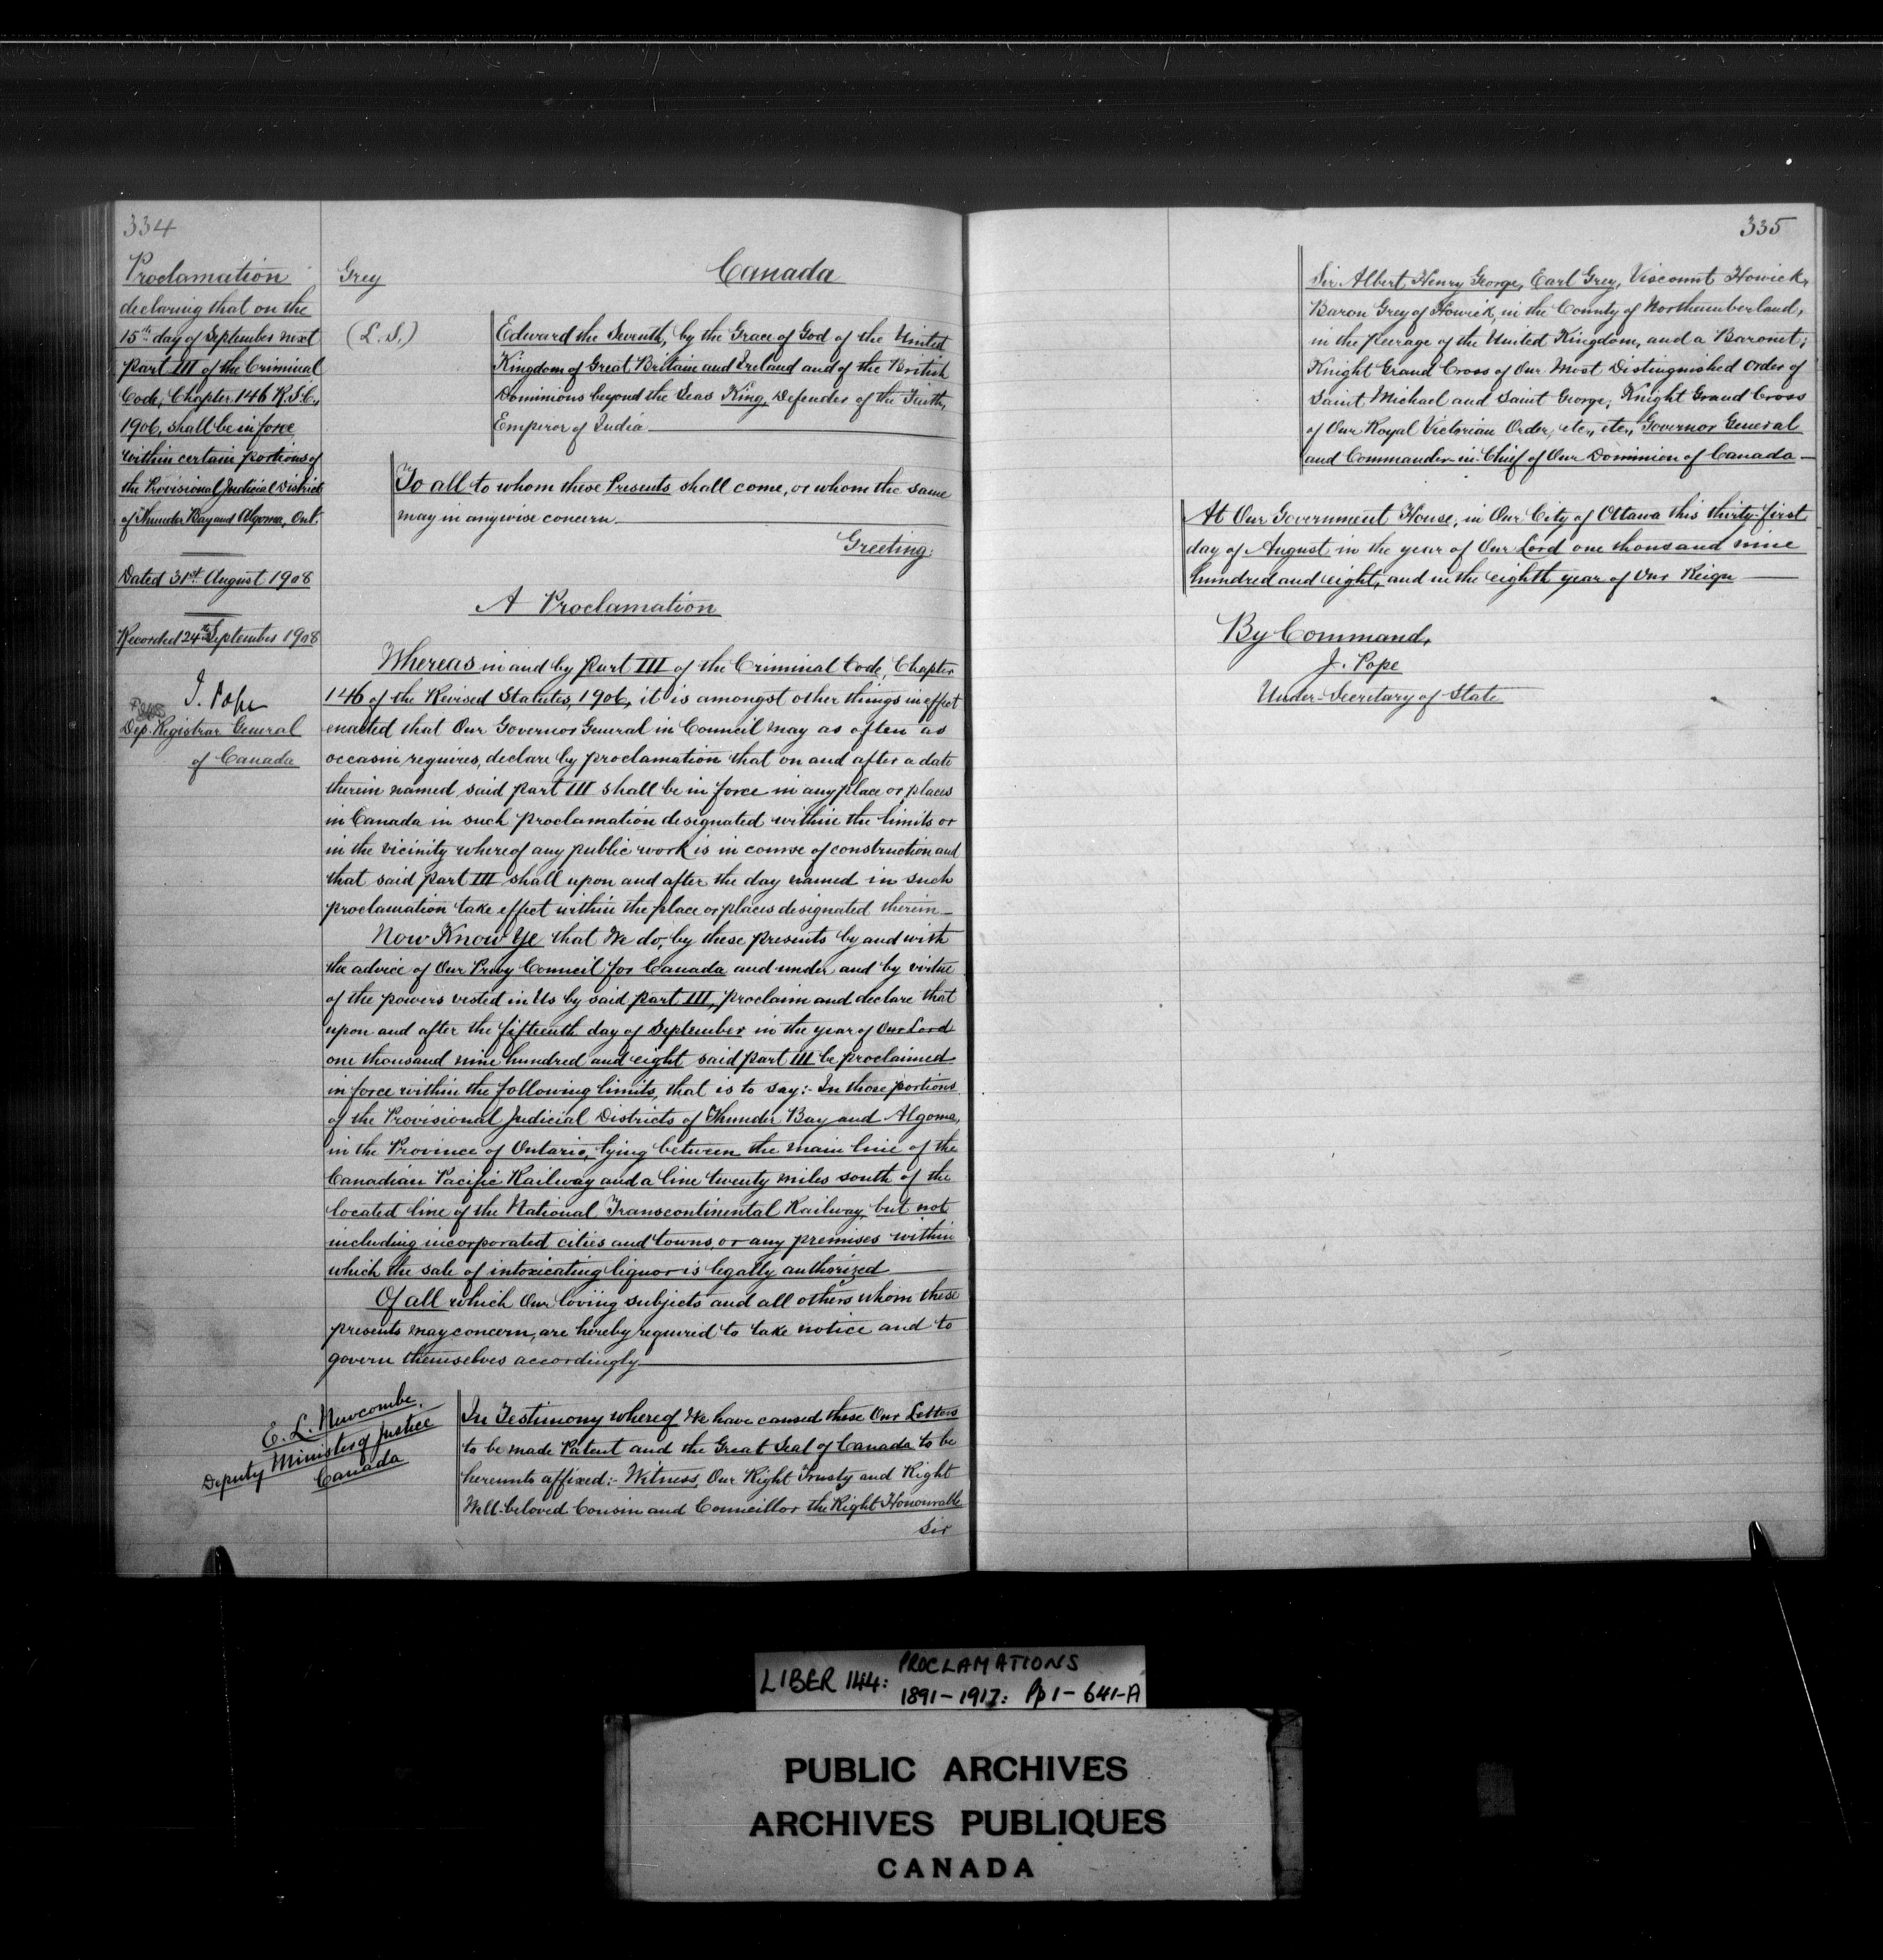 334
Proclamation
declaring that on the
15th day of September next
Part III of the Criminal
Code, Chapter 146 R.S.C.,
1906, shall be in force
within certain portions of
the Provisional Judicial District
of Thunder Bay and Algoma, Ont.
Dated 31st August 1908
Recorded 24th September 1908
J. Pope
Dep. Registrar General
of Canada
Grey
Canada
(L.S.)
Edward the Seventh, by the Grace of God of the United
Kingdom of Great Britain and Ireland and of the British
Dominions beyond the Seas King, Defender of the Faith,
Emperor of India
To all to whom these Presents shall come, or whom the same
may in anywise concern
Greeting:
A Proclamation
Whereas in and by Part III of the Criminal Code, Chapter
146 of the Revised Statutes, 1906, it is amongst other things in effect
enacted that Our Governor General in Council may as often as
occasion requires, declare by proclamation that on and after a date
therein named said Part III shall be in force in any place or places
in Canada in such proclamation designated within the limits or
in the vicinity whereof any public work is in course of construction and
that said Part III shall upon and after the day named in such
proclamation take effect within the place or places designated therein
Now Know Ye that We do, by these presents by and with
the advice of Our Privy Council for Canada and under and by virtue
of the powers vested in Us by said Part III, proclaim and declare that
upon and after the fifteenth day of September in the year of Our Lord
one thousand nine hundred and eight said Part III be proclaimed
in force within the following limits, that is to say:- In those portions
of the Provisional Judicial Districts of Thunder Bay and Algoma,
in the Province of Ontario, lying between the main line of the
Canadian Pacific Railway and a line twenty miles south of the
located line of the National Transcontinental Railway, but not
including incorporated cities and towns, or any premises within
which the sale of intoxicating liquor is legally authorized
Of all which Our loving subjects and all others whom these
presents may concern, are hereby required to take notice and to
govern themselves accordingly
E. L. Newcombe,
Deputy Minister of Justice
Canada
In Testimony whereof We have caused these Our Letters
to be made Patent and the Great Seal of Canada to be
hereunto affixed:- Witness, Our Right Trusty and Right
Well-beloved Cousin and Councillor the Right Honourable
Sir
335
Sir Albert Henry George, Earl Grey, Viscount Howick,
Baron Grey of Howick, in the County of Northumberland,
in the Peerage of the United Kingdom, and a Baronet;
Knight Grand Cross of Our Most Distinguished Order of
Saint Michael and Saint George, Knight Grand Cross
of Our Royal Victorian Order, etc., etc., Governor General
and Commander-in-Chief of Our Dominion of Canada
At Our Government House, in Our City of Ottawa this thirty-first
day of August in the year of Our Lord one thousand nine
hundred and eight, and in the eighth year of Our Reign
By Command,
J. Pope
Under-Secretary of State
LIBER 144: PROCLAMATIONS
1891-1917: Pp 1-641-A
PUBLIC ARCHIVES
ARCHIVES PUBLIQUES
CANADA